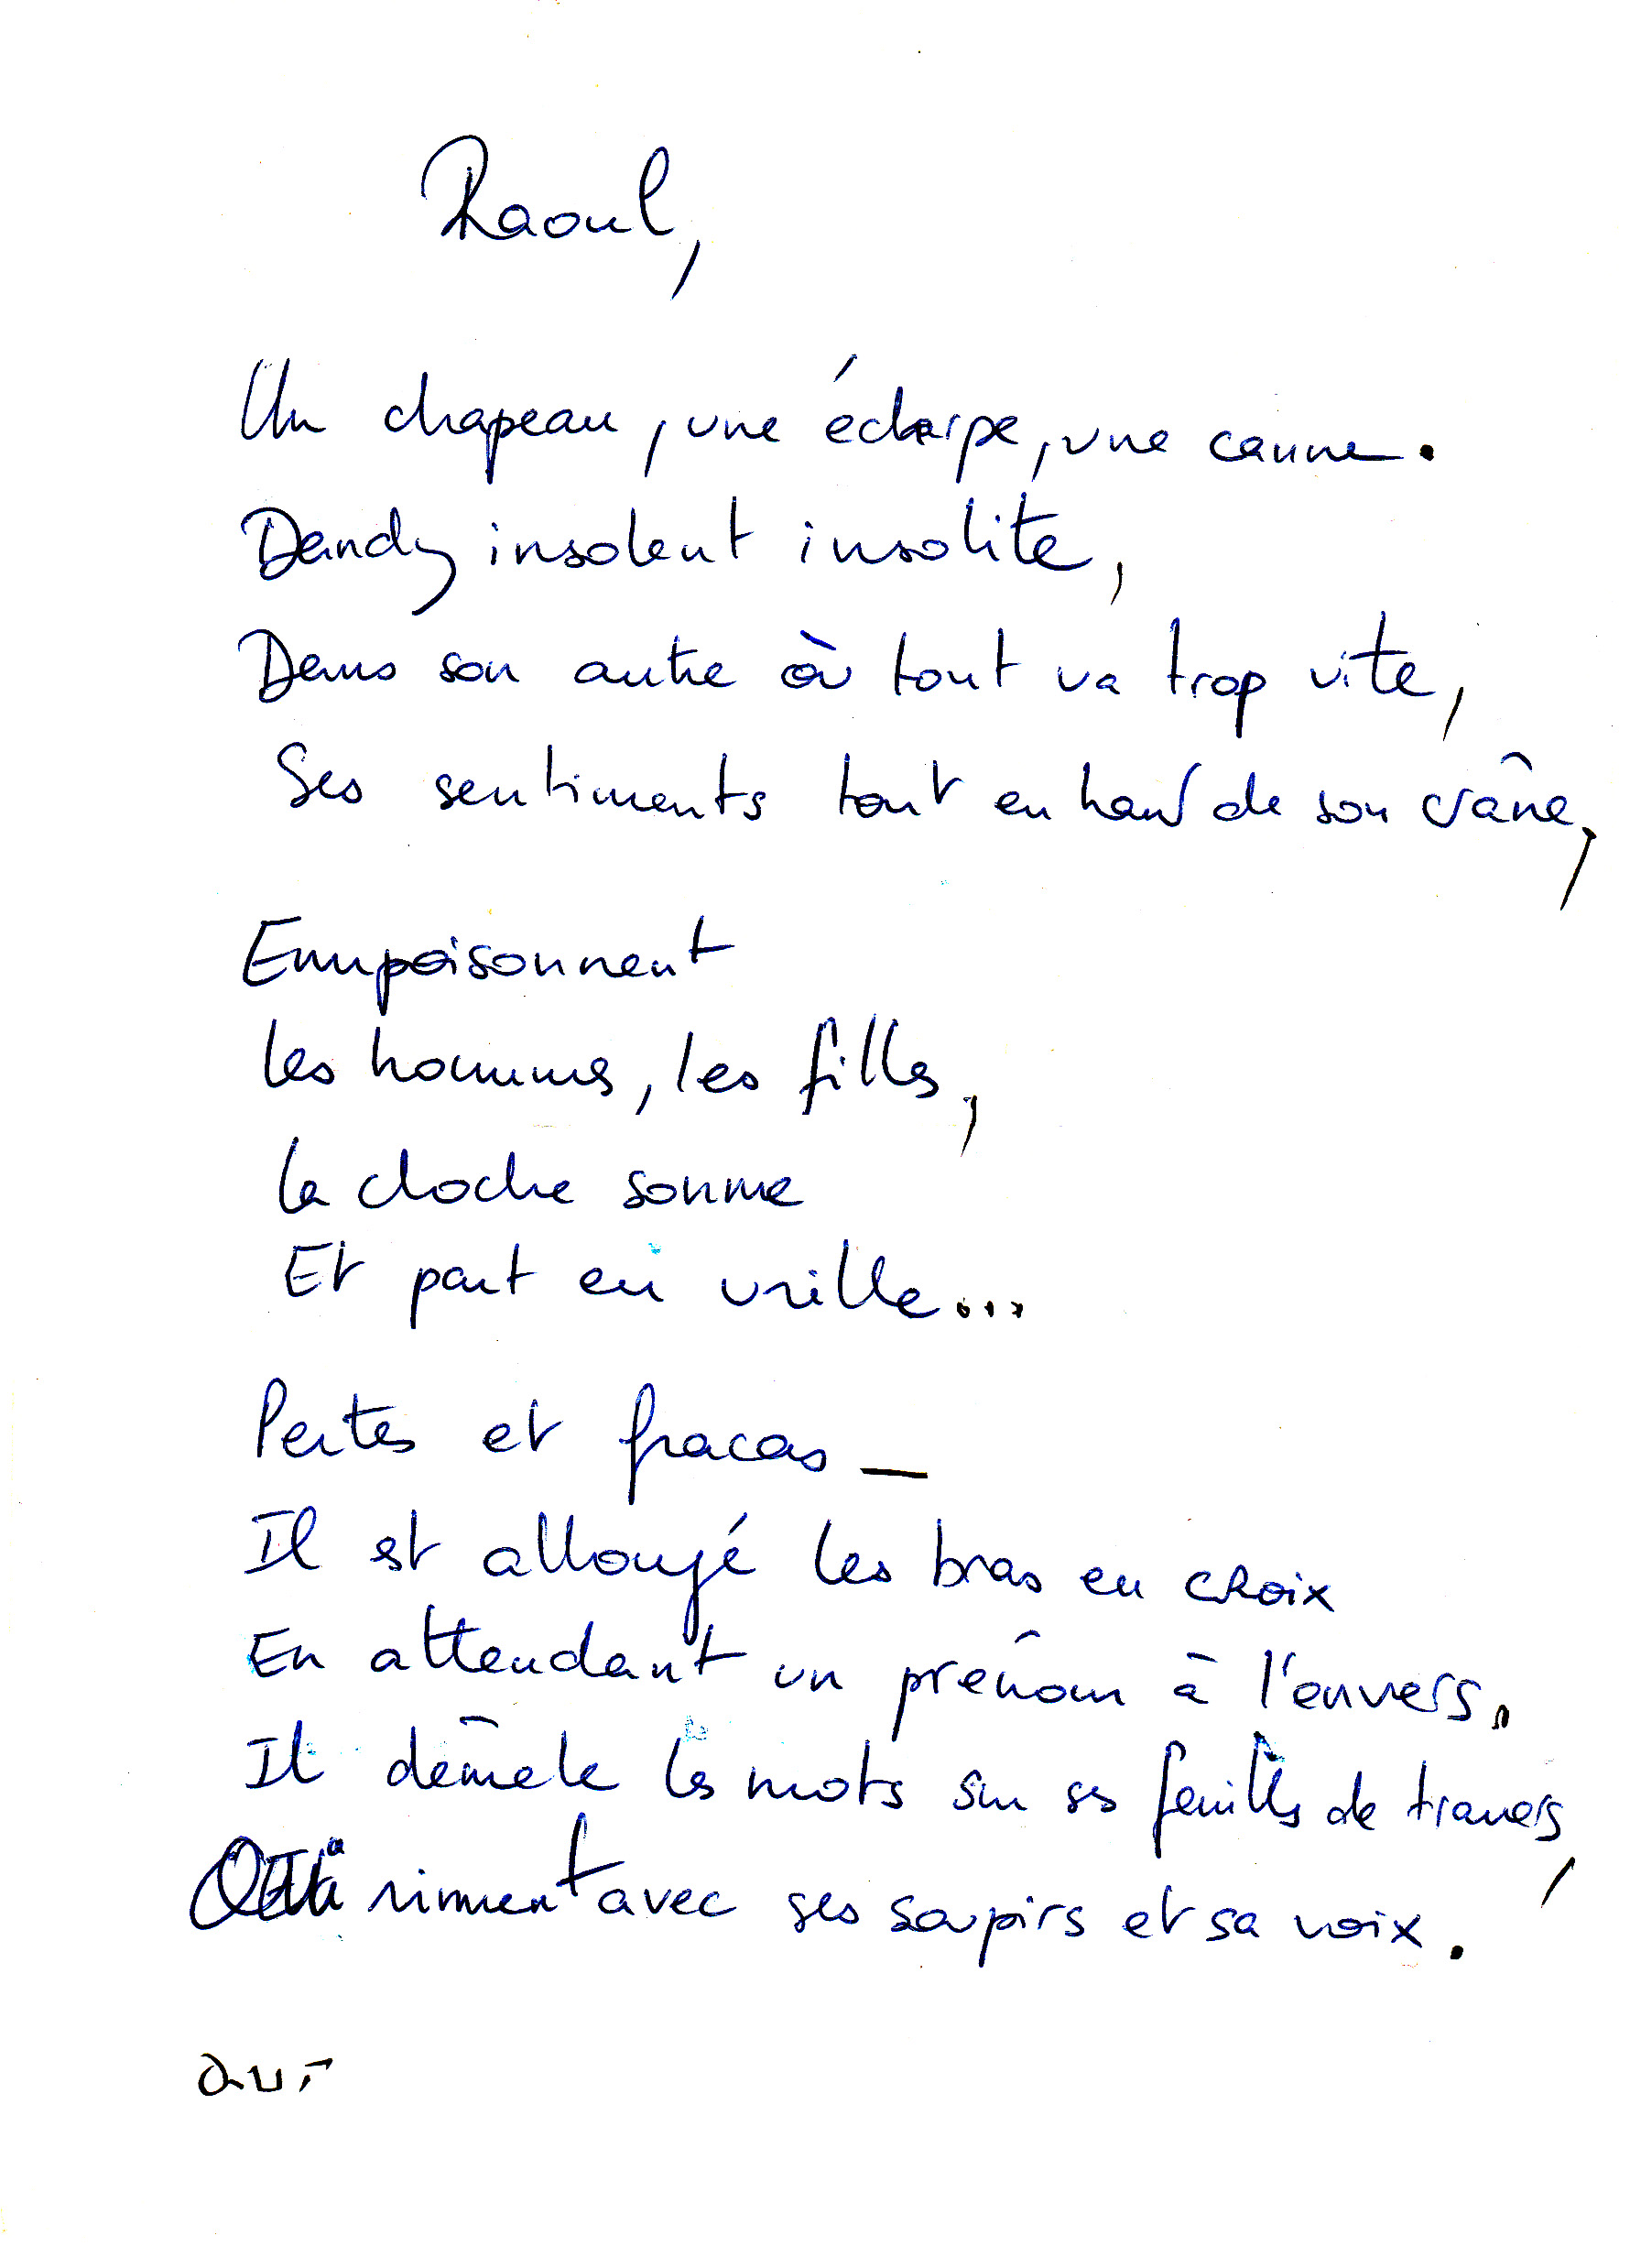 Raoul,
Un chapeau, une écharpe, une canne.
Dandy insolent insolite,
Dans son antre où tout va trop vite,
Ses sentiments tout en haut de son crâne,
Empoisonnent
les hommes, les filles,
la cloche sonne
Et part en vrille...
Pertes et fracas —
Il est allongé les bras en croix
En attendant un prénom à l'envers,
Il démêle les mots sur ses feuilles de travers,
riment avec ses soupirs et sa voix.